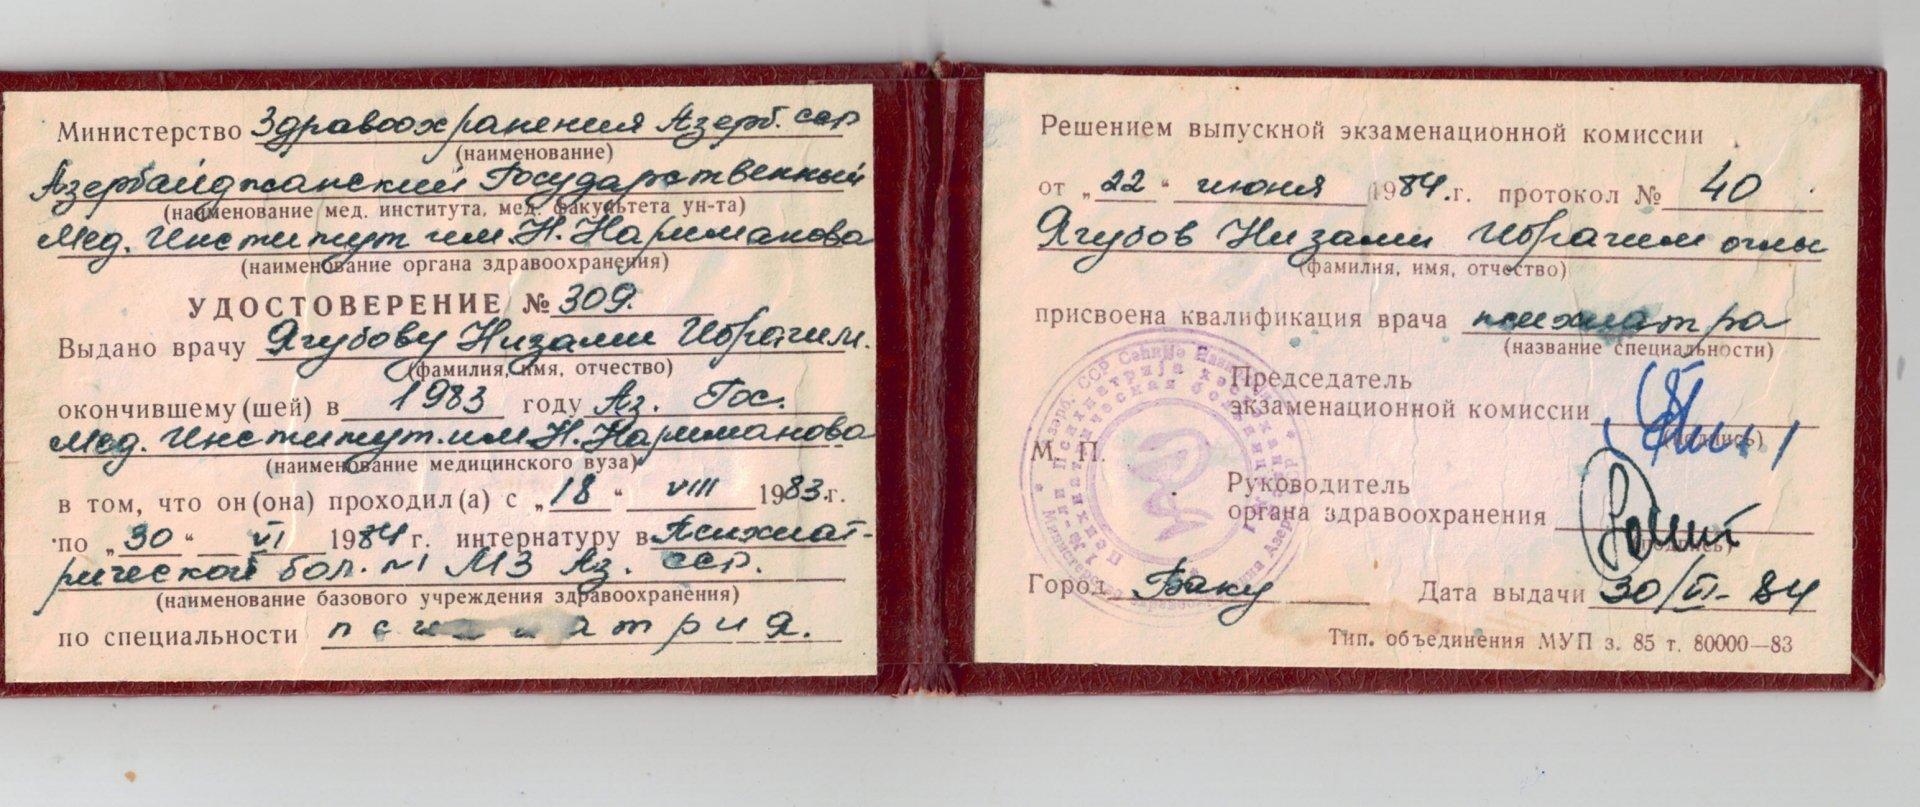 Министерство Здравоохранения Азерб. сср
(наименование)
Азербайджанский Государственный
(наименование мед. института, мед. факультета ун-та)
Мед. Институт им. Н. Нариманова
(наименование органа здравоохранения)
УДОСТОВЕРЕНИЕ № 309.
Выдано врачу Ягубову Низами Ибрагим.
(фамилия, имя, отчество)
окончившему (шей) в 1983 году Аз. Гос.
Мед. Институт. им Н. Нариманова
(наименование медицинского вуза)
в том, что он (она) проходил (а) с „18“ VIII 1983 г.
по „30“ VI 1984 г. интернатуру в Психиат-
рической бол. №1 МЗ Аз. сср.
(наименование базового учреждения здравоохранения)
по специальности психиатрия.
Решением выпускной экзаменационной комиссии
от „22“ июня 1984. г. протокол № 40
Ягубов Низами Ибрагим оглы
(фамилия, имя, отчество)
присвоена квалификация врача психиатра
(название специальности)
Председатель
экзаменационной комиссии
(подпись)
М. П.
Руководитель
органа здравоохранения
(подпись)
Город Баку Дата выдачи 30/VI-84
Тип. объединения МУП з. 85 т. 80000—83